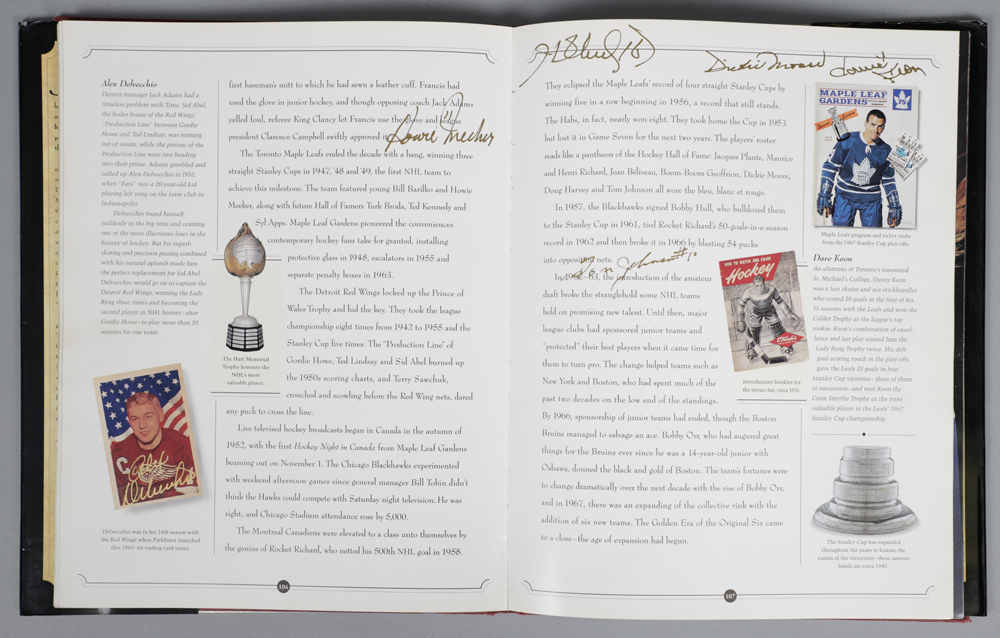 Alex Delvecchio
Detroit manager Jack Adams had a
timeless problem with Time. Sid Abel,
the boiler house of the Red Wings'
"Production Line" between Gordie
Howe and Ted Lindsay, was running
out of steam, while the pistons of the
Production Line were just heading
into their prime. Adams gambled and
called up Alex Delvecchio in 1952,
when "Fats" was a 20-year-old kid
playing left wing on the farm club in
Indianapolis.
Delvecchio found himself
suddenly in the big time and centring
one of the most illustrious lines in the
history of hockey. But his superb
skating and precision passing combined
with his natural aplomb made him
the perfect replacement for Sid Abel.
Delvecchio would go on to captain the
Detroit Red Wings, winning the Lady
Byng three times and becoming the
second player in NHL history—after
Gordie Howe—to play more than 20
seasons for one team.
C
Alex Delvecchio
Delvecchio was in his 14th season with
the Red Wings when Parkhurst launched
this 1963–64 trading card series
first baseman's mitt to which he had sewn a leather cuff. Francis had
used the glove in junior hockey, and though opposing coach Jack Adams
yelled foul, referee King Clancy let Francis use the glove and league
president Clarence Campbell swiftly approved it.
Howie Meeker
The Toronto Maple Leafs ended the decade with a bang, winning three
straight Stanley Cups in 1947, '48 and '49, the first NHL team to
achieve this milestone. The team featured young Bill Barilko and Howie
Meeker, along with future Hall of Famers Turk Broda, Ted Kennedy and
Syl Apps. Maple Leaf Gardens pioneered the conveniences
contemporary hockey fans take for granted, installing
protective glass in 1948, escalators in 1955 and
separate penalty boxes in 1963.
The Detroit Red Wings locked up the Prince of
Wales Trophy and hid the key. They took the league
championship eight times from 1942 to 1955 and the
Stanley Cup five times. The "Production Line" of
Gordie Howe, Ted Lindsay and Sid Abel burned up
the 1950s scoring charts, and Terry Sawchuk,
crouched and scowling before the Red Wing nets, dared
any puck to cross the line.
Live televised hockey broadcasts began in Canada in the autumn of
1952, with the first Hockey Night in Canada from Maple Leaf Gardens
beaming out on November 1. The Chicago Blackhawks experimented
with weekend afternoon games since general manager Bill Tobin didn't
think the Hawks could compete with Saturday night television. He was
right, and Chicago Stadium attendance rose by 5,000.
The Montreal Canadiens were elevated to a class unto themselves by
the genius of Rocket Richard, who netted his 500th NHL goal in 1958.
The Hart Memorial
Trophy honours the
NHL's most
valuable player
106
Dickie Moore
Dave Keon
They eclipsed the Maple Leafs' record of four straight Stanley Cups by
winning five in a row beginning in 1956, a record that still stands.
The Habs, in fact, nearly won eight. They took home the Cup in 1953
but lost it in Game Seven for the next two years. The players' roster
reads like a pantheon of the Hockey Hall of Fame: Jacques Plante, Maurice
and Henri Richard, Jean Béliveau, Boom-Boom Geoffrion, Dickie Moore,
Doug Harvey and Tom Johnson all wore the bleu, blanc et rouge.
In 1957, the Blackhawks signed Bobby Hull, who bulldozed them
to the Stanley Cup in 1961, tied Rocket Richard's 50-goals-in-a-season
record in 1962 and then broke it in 1966 by blasting 54 pucks
into opposing nets.
Tom Johnson #10
In 1962–63, the introduction of the amateur
draft broke the stranglehold some NHL teams
held on promising new talent. Until then, major
league clubs had sponsored junior teams and
"protected" their best players when it came time for
them to turn pro. The change helped teams such as
New York and Boston, who had spent much of the
past two decades on the low end of the standings.
By 1966, sponsorship of junior teams had ended, though the Boston
Bruins managed to salvage an ace. Bobby Orr, who had augured great
things for the Bruins ever since he was a 14-year-old junior with
Oshawa, donned the black and gold of Boston. The team's fortunes were
to change dramatically over the next decade with the rise of Bobby Orr,
and in 1967, there was an expansion of the collective rink with the
addition of six new teams. The Golden Era of the Original Six came
to a close—the age of expansion had begun.
HOW TO WATCH AND ENJOY
Hockey
Introductory booklet for
the novice fan, circa 1951.
MAPLE LEAF
GARDENS
75
Maple Leafs program and ticket stubs
from the 1967 Stanley Cup play-offs.
Dave Keon
An alumnus of Toronto's renowned
St. Michael's College, Davey Keon
was a fast skater and ace stickhandler
who scored 20 goals in the first of his
15 seasons with the Leafs and won the
Calder Trophy as the league's top
rookie. Keon's combination of excel-
lence and fair play earned him the
Lady Byng Trophy twice. His deft
goal-scoring touch in the play-offs
gave the Leafs 32 goals in four
Stanley Cup victories—three of them
in succession—and won Keon the
Conn Smythe Trophy as the most
valuable player in the Leafs' 1967
Stanley Cup championship.
The Stanley Cup has expanded
throughout the years to feature the
names of the victorious—these uneven
bands are circa 1940.
107